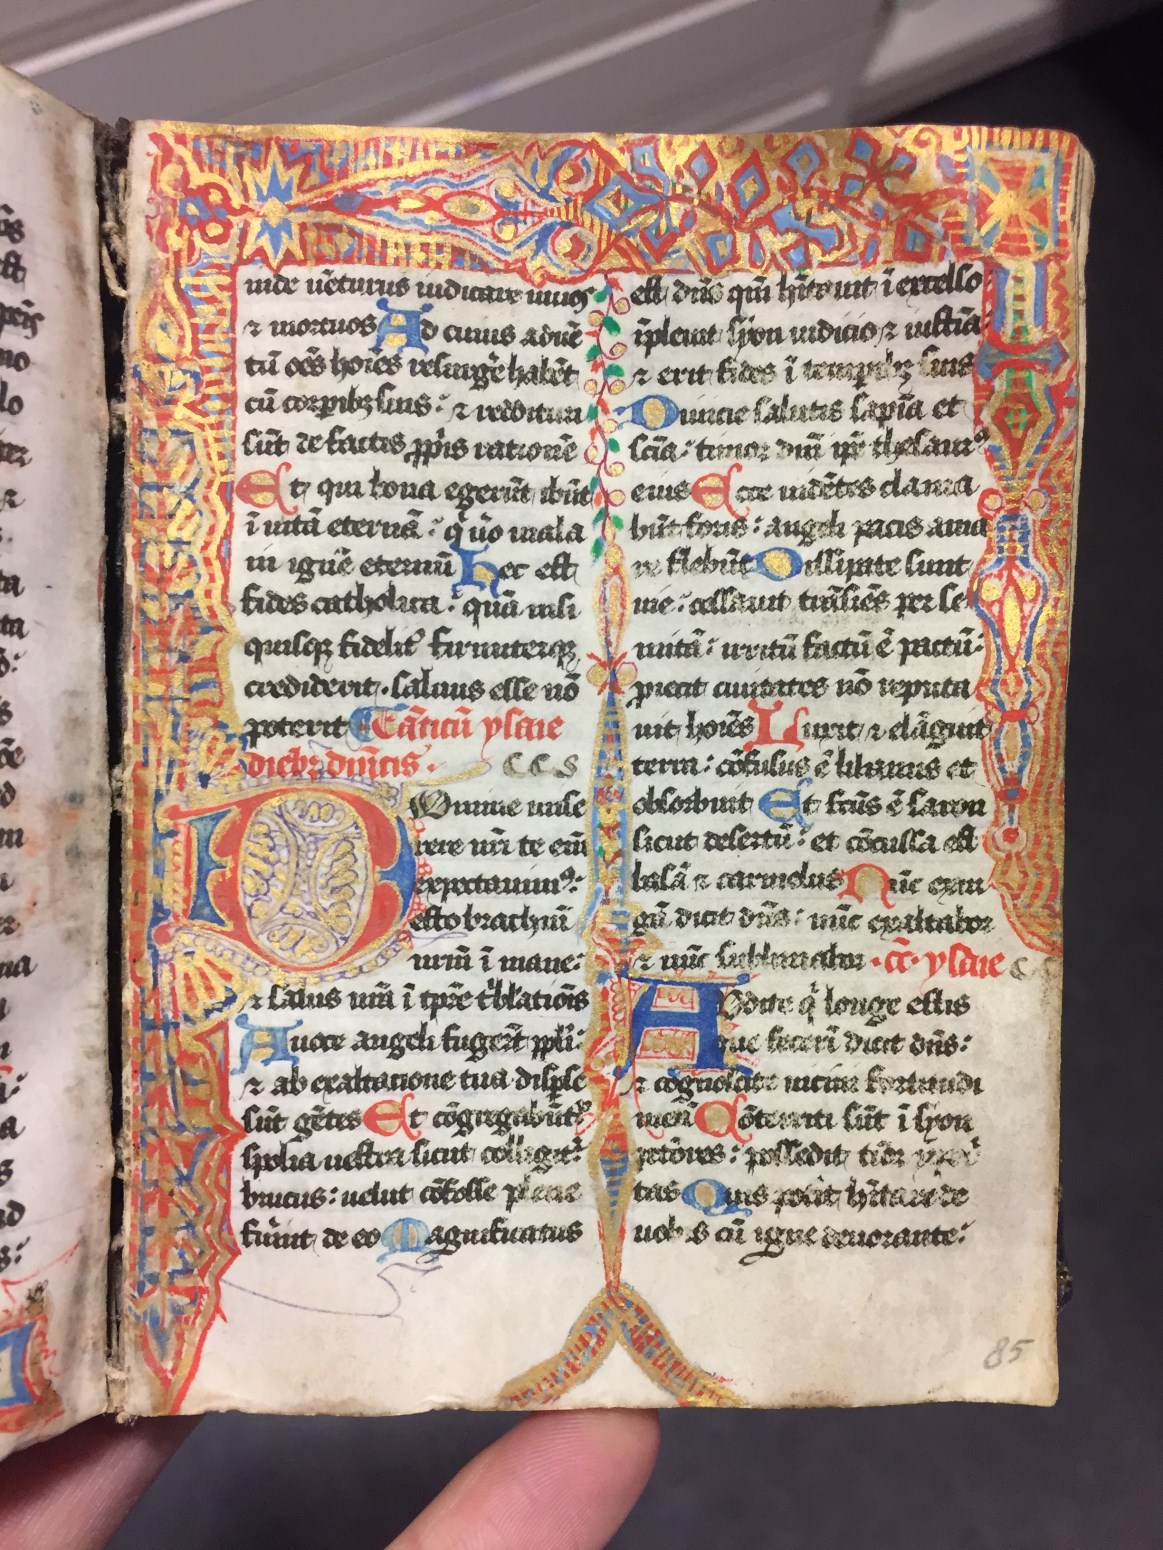 inde uēturus iudicare uiuos
⁊ mortuos Ad cuius aduē
tū oēs hoīes resurgẽ habēt
cū corꝑibꝫ suis: ⁊ reddituri
sūt de factis ꝓpͥis rationē
Et qui bona egerūt ibūt
ī uitā eternā: qͥ ṽo mala
in ignē eternū Hec est
fides catholica: quā nisi
quisqꝫ fidelitͬ firmiterqꝫ
crediderit. saluus esse nō
poterit Cāticū ysaie
diebꝫ dūicis.
c c s
Domine mise
rere nrī te enī
expectauimꝰ:
esto brachiū
nrm̄ ī mane:
⁊ salus nrā ī tpr̄e tͥblatiōis
A uoce angeli fugerūt ppl̄i:
⁊ ab exaltatione tua disꝑse
sūt gētes Et cōgregabūtͬ
spolia uestra sicut colligitͬ
brucus: uelut cū fosse plene
fuīnt de eo Magnificatus
est dn̄s qm̄ hītauit ī excelso
īpleuit syon iudicio ⁊ iustīa:
⁊ erit fides ī temporibꝫ suis
Diuicie salutis sapīa et
scīa: timor dnī ip̄e thesaurꝰ
eius Ecce uidētes clama
būt foris: angeli pacis ama
re flebūt Dissipate sunt
uie: cessauit trāsiēs per se
mitā: irritū factū ē pactū:
proiecit ciuitates nō reputa
uit hoīes Luxit ⁊ elāguit
terra: cōfusus ē libanus et
obsorduit Et fcūs ē saron
sicut desertū: et cōcussa est
basā ⁊ carmelus Nūc exur
gā dicit dn̄s: nūc exaltabor
⁊ nūc subleuabor. cc̄. ysaie c c
Audite qͥ longe estis
que fecerī dicit dn̄s:
⁊ cōgnoscite uicini fortitudi
nem̄ Cōterriti sūt ī syon
pctōres: possedit tremor ypocͥ
tas Quis poīit hītare de
uobis cū igne deuorante:
85